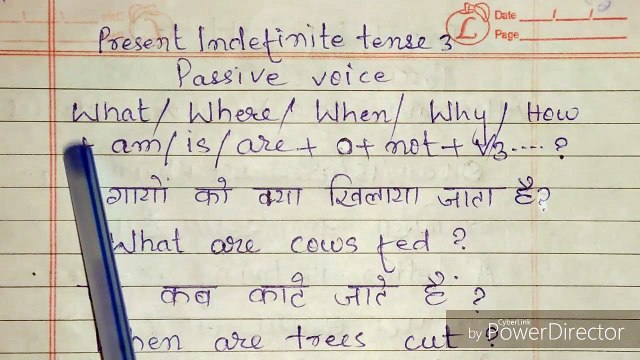 Date
Page
Present Indefinite tense 3
Passive voice
What/ Where/ When/ Why/ How
+ am/is/are + o+ not + V3....?
गायों को क्या खिलाया जाता है?
What are cows fed?
कब काटे जाते हैं?
are trees cut?
CyberLink
by PowerDirector